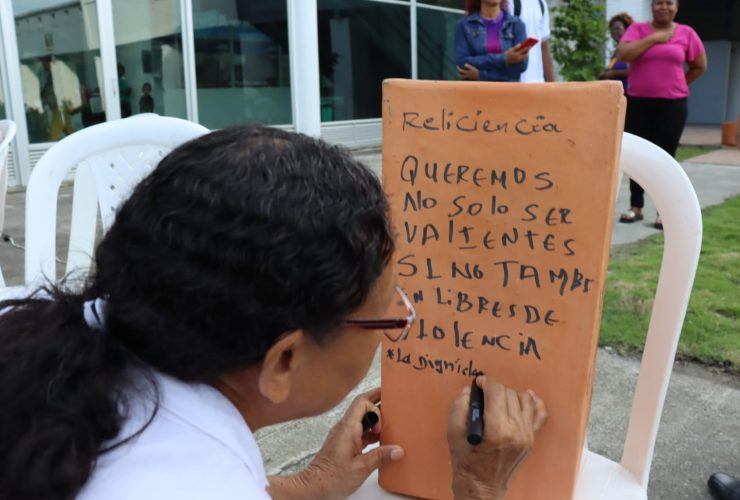 Reliciencia
QUEREMOS
NO SOLO SER
VALIENTES
SINO TAMBI
N LIBRES DE
IOLENCIA
*La Dignida